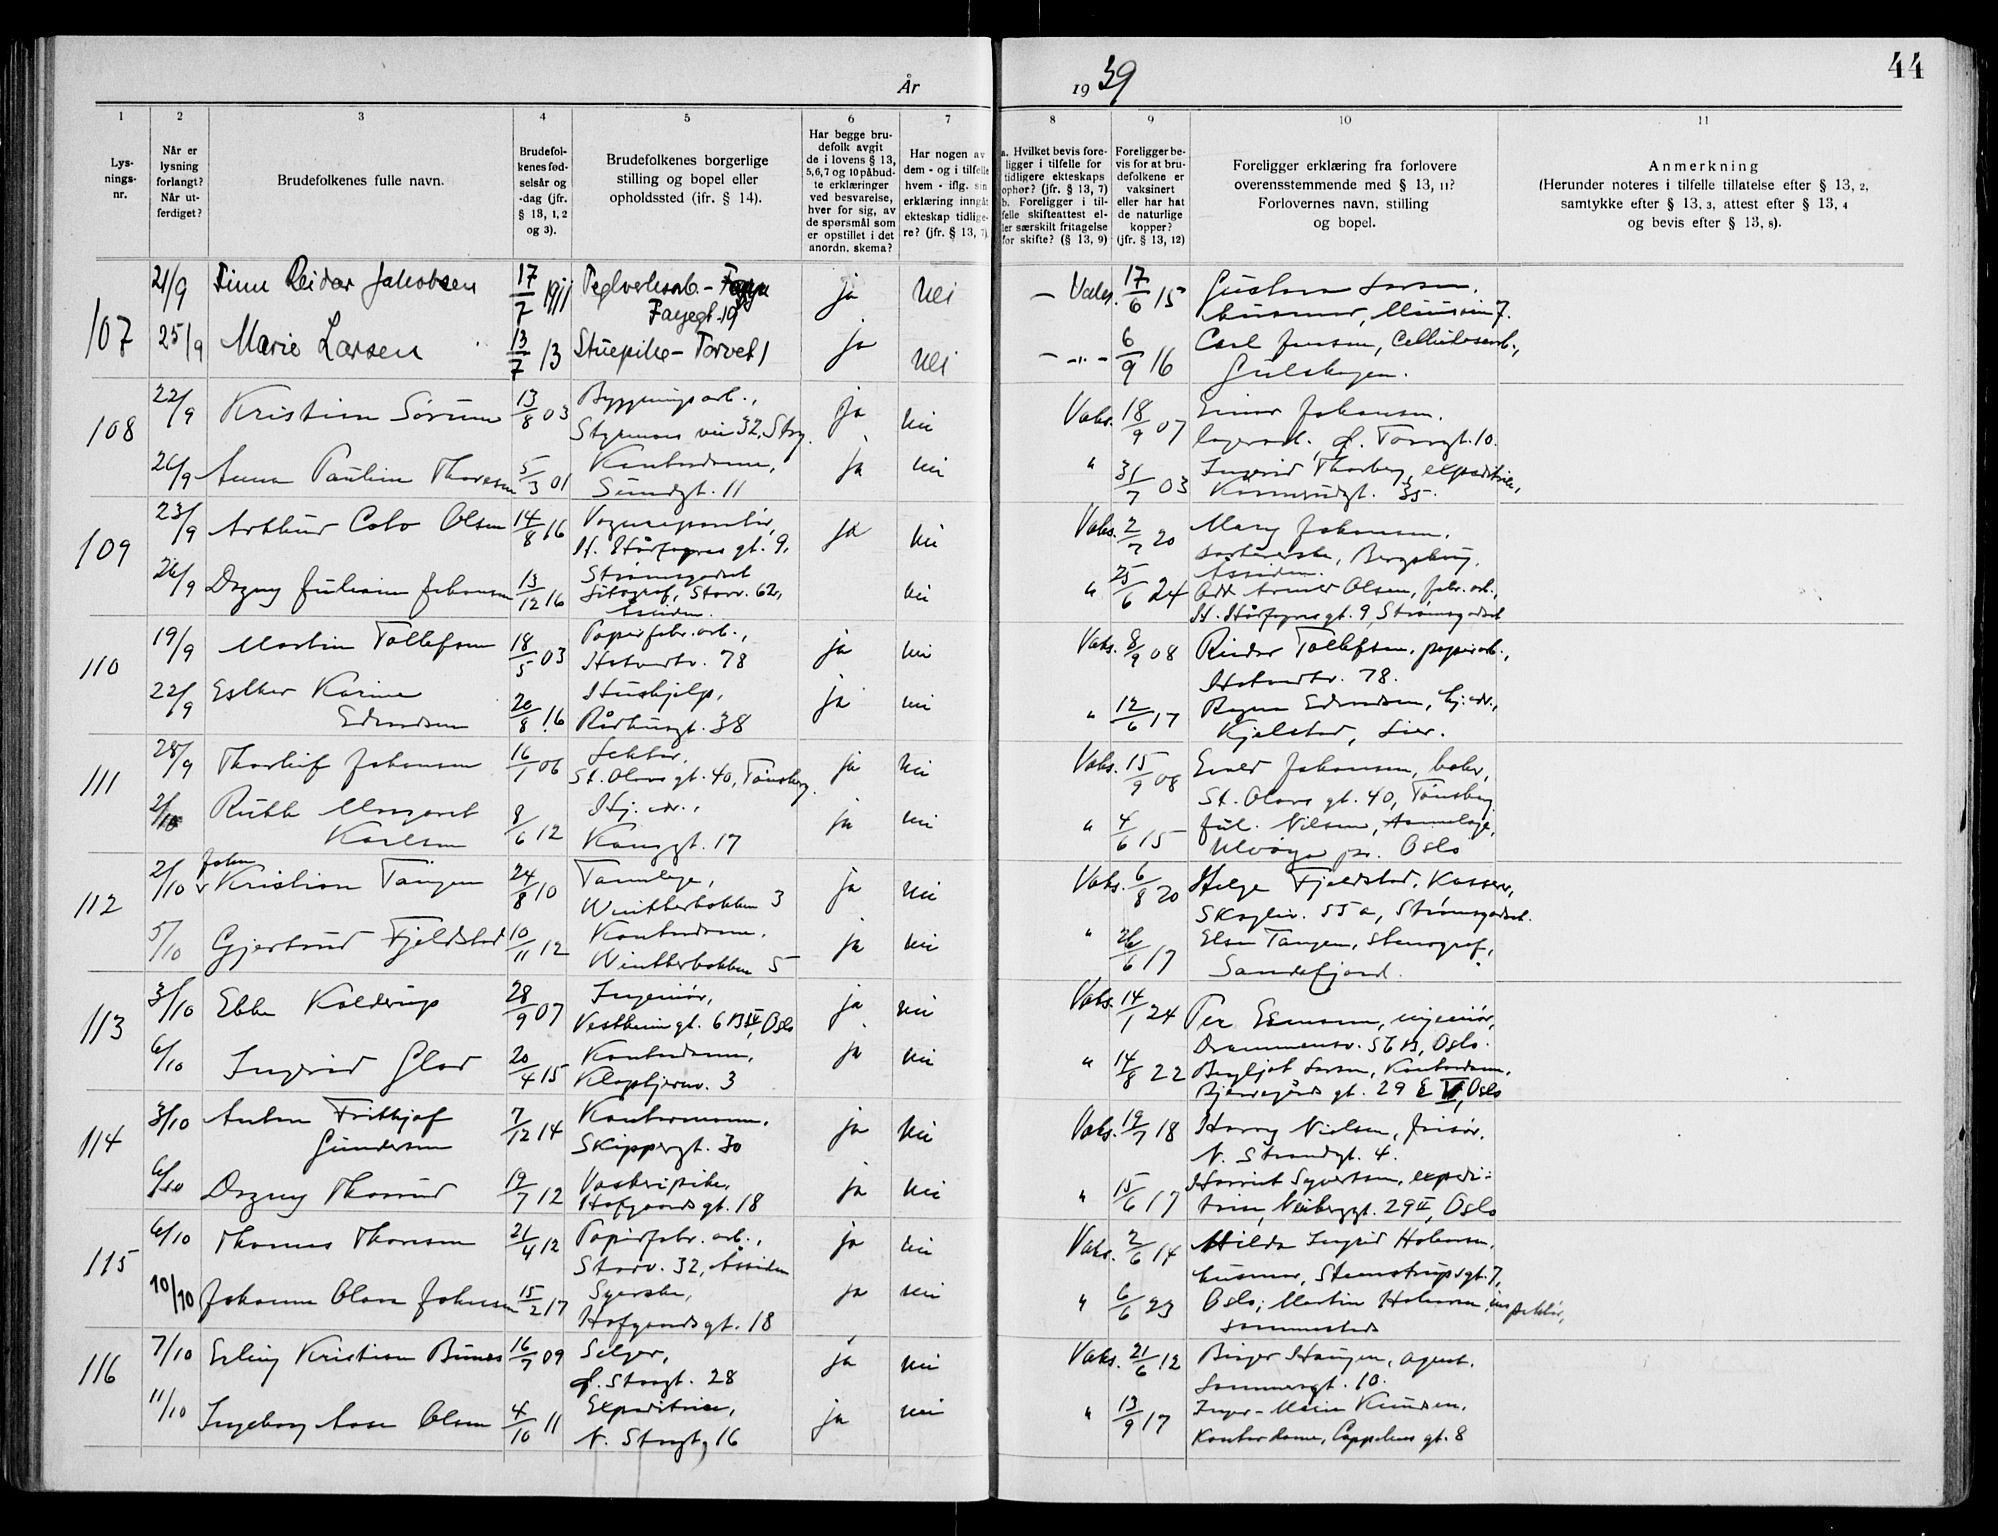 År
1939
44
1
2
3
4
5
6
7
8
9
10
11
Lys-
nings-
nr.
Når er
lysning
forlangt?
Når ut-
ferdiget?
Brudefolkenes fulle navn.
Brudefol-
kenes fød-
selsår og
-dag (jfr.
§ 13, 1, 2
og 3).
Brudefolkenes borgerlige
stilling og bopel eller
opholdssted (jfr. § 14).
Har begge bru-
defolk avgit
de i lovens § 13,
5,6,7 og 10 påbud-
te erklæringer
ved besvarelse,
hver for sig, av
de spørsmål som
er opstillet i det
anordn. skema?
Har nogen av
dem - og i tilfelle
hvem - iflg. sin
erklæring inngåt
ekteskap tidlige-
re? (jfr. § 13, 7)
a. Hvilket bevis fore-
ligger i tilfelle for
tidligere ekteskaps
ophør? (jfr. § 13, 7)
b. Foreligger i til-
felle skifteattest el-
ler særskilt fritagelse
for skifte? (§ 13, 9)
Foreligger be-
vis for at bru-
defolkene er
vaksinert
eller har hat
de naturlige
kopper?
(jfr. § 13, 12)
Foreligger erklæring fra forlovere
overensstemmende med § 13, 11?
Forlovernes navn, stilling
og bopel.
Anmerkning
(Herunder noteres i tilfelle tillatelse efter § 13, 2,
samtykke efter § 13, 3, attest efter § 13, 4
og bevis efter § 13, 8).
107
21/9 Finn Reidar Jakobsen 17/7 1911 Teglverksarb. -
Færgegt. 19
ja nei
— Vaks. 17/6 15 Gustava Larsen,
husmor,
25/9 Marie Larsen 13/7 13 Stuepike - Torvet 1
ja nei
— " — 6/9 16 Carl Jensen, Cellulosearb.,
Gulskogen.
108
22/9 Kristian Sørum 13/8 03 Bygningsarb.,
Styrmoes vei 32, Strg.
ja nei
Vaks. 18/9 07 Einar Johansen,
lagerarb., Ø. Torvgt. 10.
26/9 Anna Pauline Thoresen 5/3 01 Kontordame,
Sundgt. 11
ja nei
" 31/7 03 Ingrid Thorberg, expeditrice,
Konnerudgt. 35.
109
23/9 Arthur Colo Olsen 14/8 16 Vognreparatør,
H. Hårfagres gt. 9,
Strømsgodset
ja nei
Vaks. 2/7 20 Mary Johansen,
sorterske, Bergskaug,
Åssiden.
26/9 Dagny Juliane Johansen 13/12 16 Litograf, Storv. 62,
Åssiden.
nei
" 25/6 24 Odd Arnold Olsen, fabr. arb.,
H. Hårfagres gt. 9, Strømsgodset
110
19/9 Martin Tollefsen 18/5 03 Papirfabr. arb.,
Hotvedtv. 78
ja nei
Vaks. 8/9 08 Reidar Tollefsen, papirarb.,
Hotvedtv. 78.
22/9 Esther Karine
Edvardsen 20/8 16 Hushjelp,
Rådhusgt. 38
ja nei
" 12/6 17 Ragna Edvardsen, hj. vær.,
Kjelstad, Lier.
111
28/9 Thorleif Johansen 16/1 06 Lektor,
St. Olavs gt. 40, Tønsberg.
ja nei
Vaks. 15/9 08 Evald Johansen, baker,
St. Olavs gt. 40, Tønsberg.
2/10 Ruth Margaret
Karlsen 8/6 12 Hj. vær.,
Kongsgt. 17
ja nei
" 4/6 15 Jul. Nilsen,
Ulvøya pr. Oslo
112
2/10 John
v Kristian Tangen 24/8 10 Tannlege,
Wintherbakken 3
ja nei
Vaks. 6/8 20 Helge Fjeldstad, Kasserer,
Skogliv. 55 a, Strømsgodset.
5/10 Gjertrud Fjeldstad 10/11 12 Kontordame,
Wintherbakken 5
ja nei
" 26/6 17 Elsa Tangen, Stenograf,
Sandefjord.
113
3/10 Ebbe Kolderup 28/9 07 Ingeniør,
Vestheimgt. 6 B IV, Oslo
ja nei
Vaks. 14/1 24 Per Esmann, ingeniør,
Drammensv. 56 B, Oslo.
6/10 Ingrid Glad 20/4 15 Kontordame,
Kloptjernv. 3
ja nei
" 14/8 22 Bergljot Larsen, Kontordame,
Bjerregårds gt. 29 E V, Oslo
114
3/10 Anton Frithjof
Gundersen 7/12 14 Kontormann,
Skippergt. 30
ja nei
Vaks. 19/7 18 Harry Nielsen, frisør,
N. Strandgt. 4.
6/10 Dagny Thorrud 19/7 12 Vaskeripike,
Hofgaards gt. 18
ja nei
" 15/6 17 Harriet Syvertsen, expedi-
trice, Neuberggt. 29 II, Oslo
115
6/10 Thomas Thoresen 21/4 12 Papirfabr. arb.,
Storv. 32, Åssiden
ja nei
Vaks. 2/6 14 Hilda Ingrid Halvorsen,
husmor, Stenstrupsgt. 7,
10/10 Johanne Olava Johnsen 15/2 17 Syerske,
Hofgaards gt. 18
ja nei
" 6/6 23 Oslo; Martin Halvorsen, inspektør,
sammesteds
116
7/10 Erling Kristian Bunes 16/7 09 Selger,
Ø. Storgt. 28
ja nei
Vaks. 21/6 12 Birger Haugen, agent,
Sommersgt. 10.
11/10 Ingeborg Aase Olsen 4/10 11 Expeditrice,
N. Storgt. 16
ja nei
" 13/9 17 Inger-Marie Knudsen,
Kontordame, Cappelens gt. 8